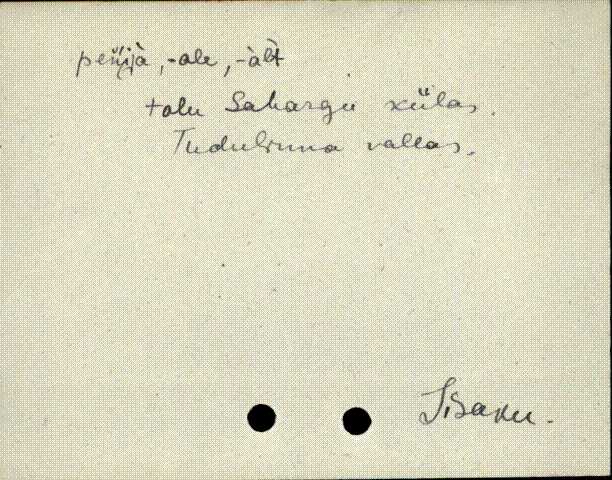 peńijà, -ale, -àlt
talu Sahargu külas.
Tudulinna vallas.
Iisaku.